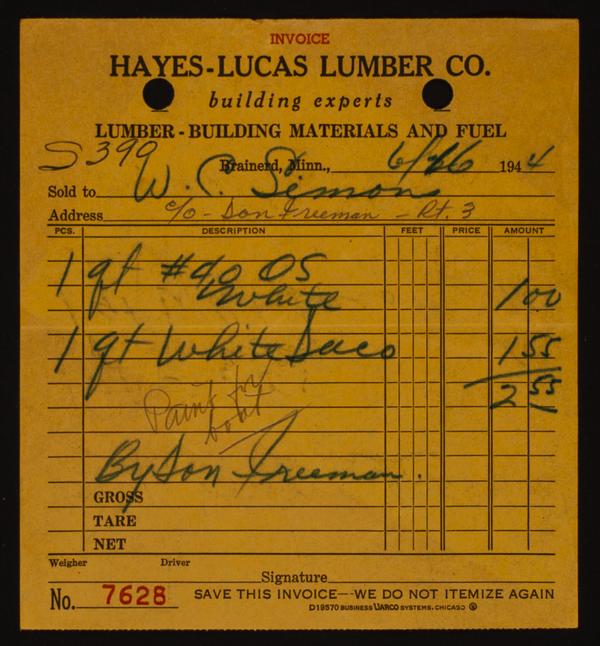 INVOICE
HAYES-LUCAS LUMBER CO.
building experts
LUMBER - BUILDING MATERIALS AND FUEL
S 399
Brainerd, Minn., 6/26 1944
Sold to W. C. Simons
Address c/o - Don Freeman - Rt. 3
PCS. DESCRIPTION FEET PRICE AMOUNT
1 qt #90 OS
White 1 00
1 qt White Saco 1 55
2 55
Paint for
boat
By Don Freeman.
GROSS
TARE
NET
Weigher Driver
Signature
No. 7628 SAVE THIS INVOICE--WE DO NOT ITEMIZE AGAIN
D19570 BUSINESS UARCO SYSTEMS, CHICAGO